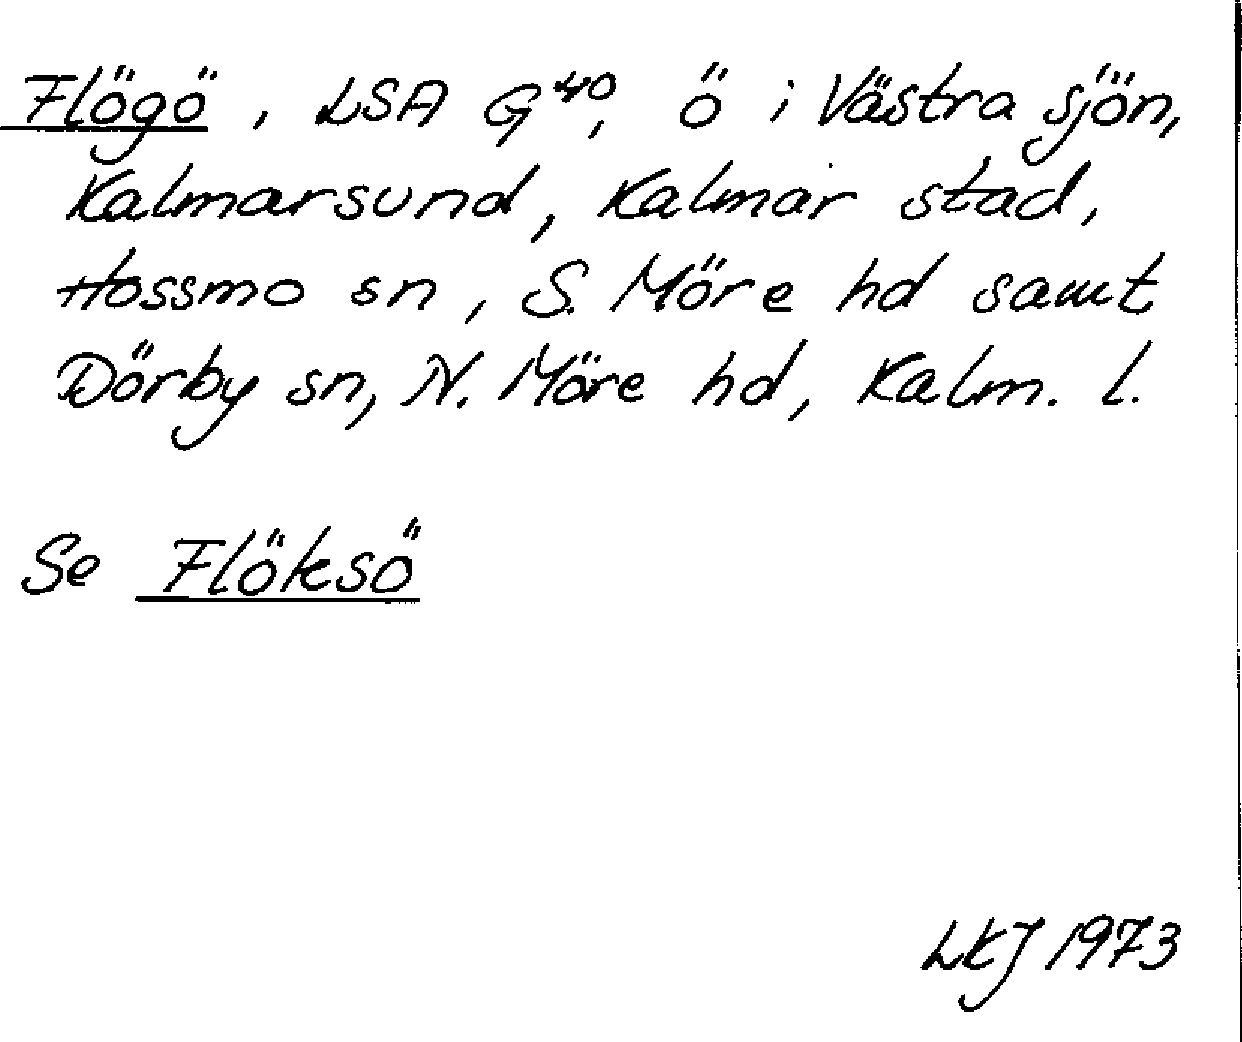 Flögö, LSA G⁴⁰, ö i Västra sjön,
Kalmarsund, Kalmar stad,
Hossmo sn, S. Möre hd samt
Dörby sn, N. Möre hd, Kalm. l.
Se Flöksö
LKJ 1973